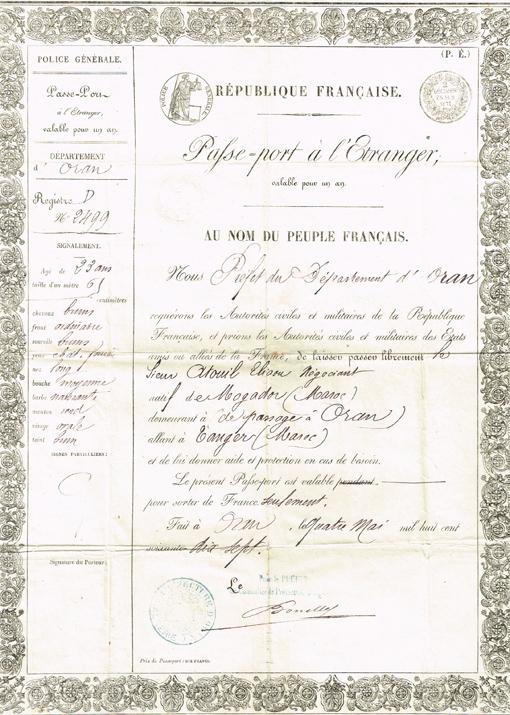 (P. É.)
POLICE GÉNÉRALE.
Passe-Port
à l'Etranger,
valable pour un an.
DÉPARTEMENT
d' Oran
Registre D
N° 2499
SIGNALEMENT.
Agé de 23 ans
taille d'un mètre 61
centimètres
cheveux bruns
front ordinaire
sourcils bruns
yeux chat. foncé
nez long
bouche moyenne
barbe naissante
menton rond
visage ovale
teint brun
SIGNES PARTICULIERS :
Signature du Porteur :
POLICE GÉNÉRALE
RÉPUBLIQUE FRANÇAISE.
Passe-port à l'Etranger,
valable pour un an.
AU NOM DU PEUPLE FRANÇAIS.
Nous Préfet du Département d' Oran
requérons les Autorités civiles et militaires de la République
Française, et prions les Autorités civiles et militaires des Etats
amis ou alliés de la France, de laisser passer librement le
Sieur Négociant
natif de Mogador (Maroc)
demeurant à (de passage à Oran)
allant à Tanger (Maroc)
et de lui donner aide et protection en cas de besoin.
Le présent Passe-port est valable pendant
pour sortir de France seulement.
Fait à Oran, le quatre Mai mil huit cent
soixante dix sept.
Le
Pour le PRÉFET
Prix du Passeport : DIX FRANCS.